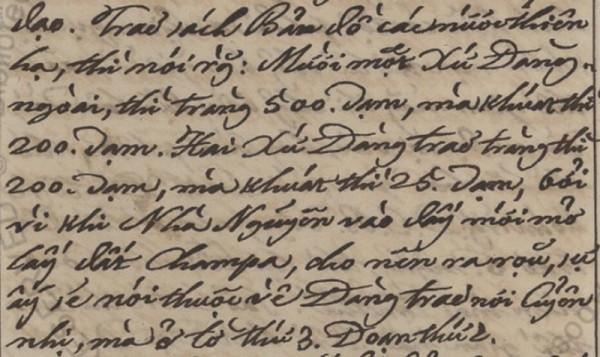 đạo. Trao sách Bản đồ các nước thiên
hạ, thì nói rằ̃: Mười một Xứ Đàng-
ngoài, thì tràng 500. dạm, mà khoát thì
200. dạm. Hai Xứ Đàng trao tràng thì
200. dạm, mà khoát thì 25. dạm, bởi
vì khi Nhà Nguyễn vào đấy mới mở
lấy đất Champa, cho nên ra rộ̃, sự
ấy sẽ nói thuộc về Đàng trao nơi Quyển
nhị, mà ở tờ thứ 3. Đoạn thứ 2.